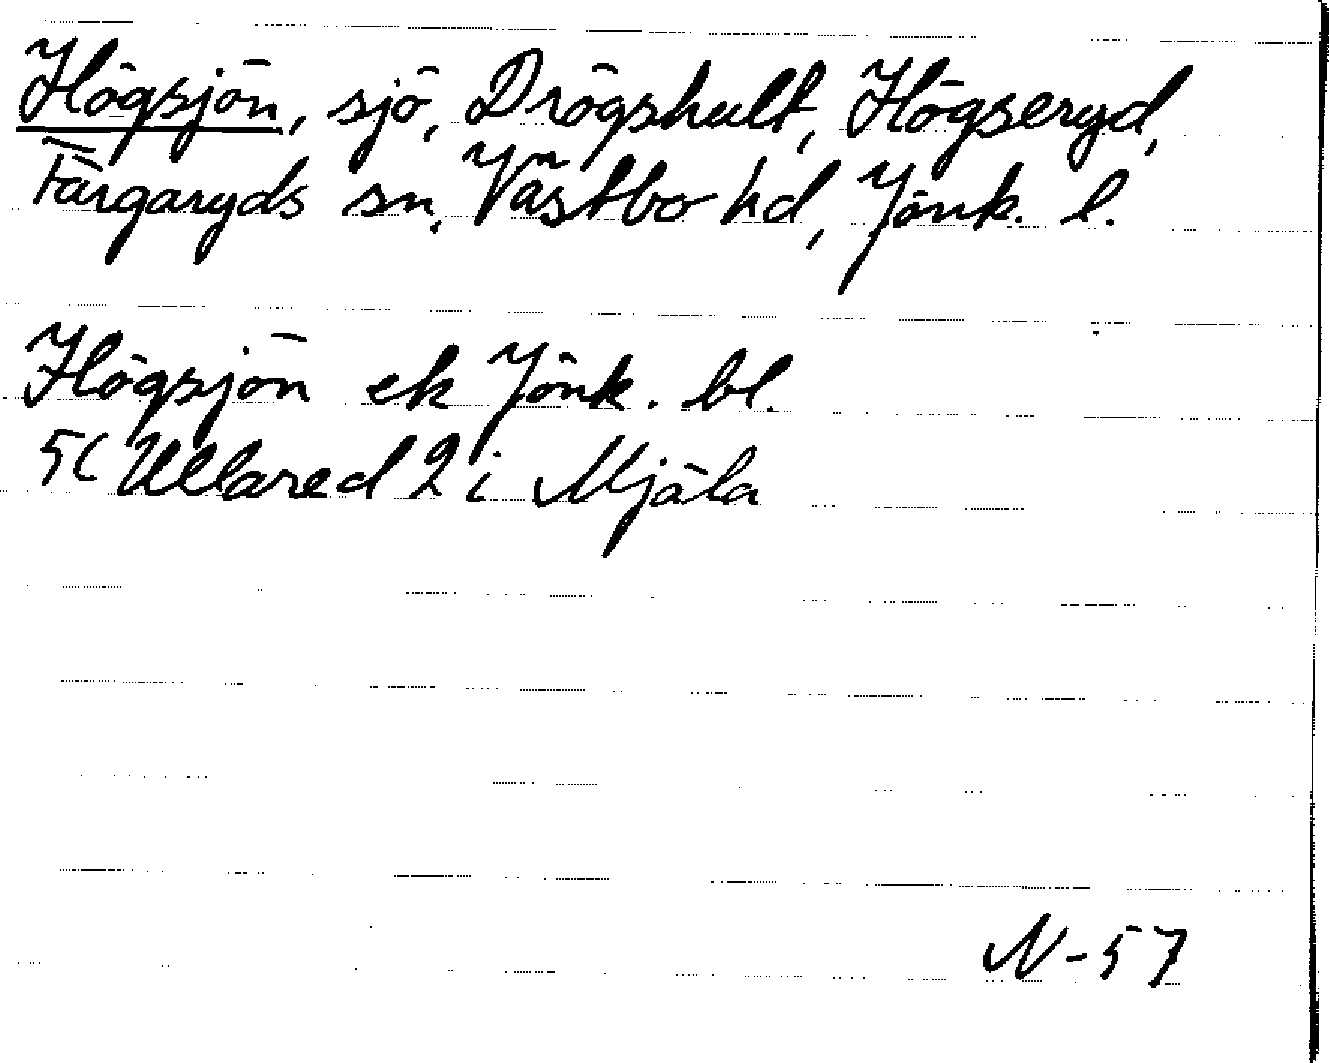 Högsjön, sjö, Drögshult, Högseryd,
Färgaryds sn, Västbo hd, Jönk. l.
Högsjön ek Jönk. bl.
5C Ullared 2 i Mjäla
N-57